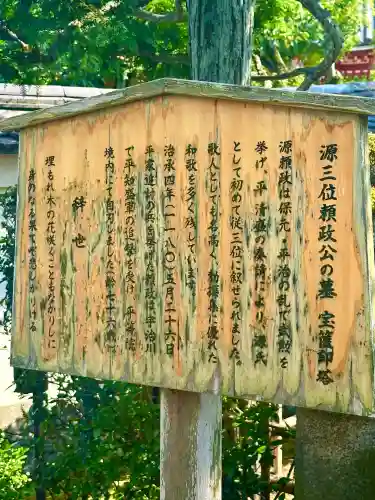 源三位頼政公の墓 宝篋印塔
源頼政は保元・平治の乱で武勲を
挙げ、平清盛の奏請により、源氏
として初めて従三位に叙せられました。
歌人としても名高く、勅撰集に優れた
和歌を多く残しています。
治承四年(一一八〇)五月二十六日
平家追討の兵を挙げた頼政は、宇治川
で平知盛軍の追撃を受け、平等院
境内にて自刃しました。(齢七十六)
辞世
埋もれ木の花咲くこともなかりしに
身のなる果てぞ悲しかりける